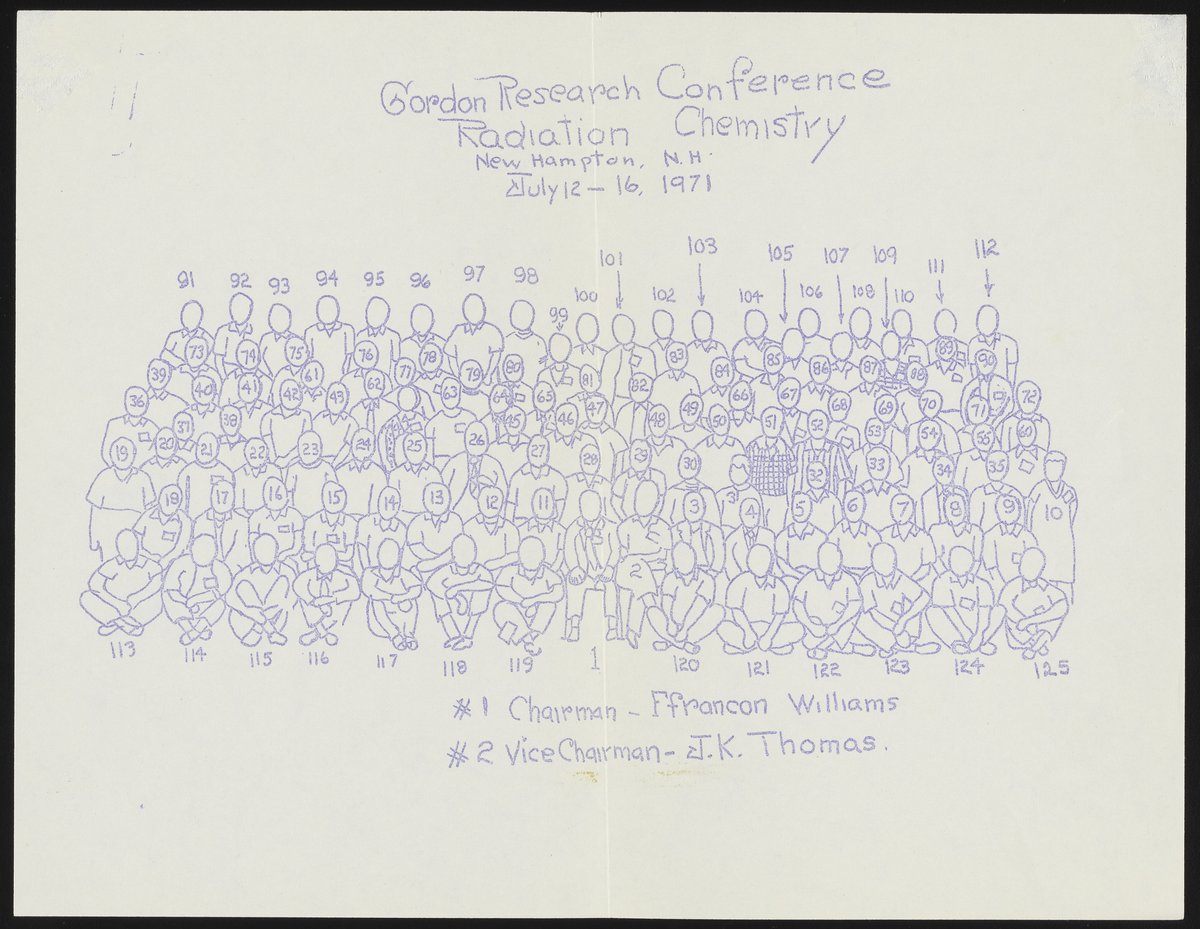 Gordon Research Conference
Radiation Chemistry
New Hampton, N.H.
July 12 – 16, 1971
101 103 105 107 109 111 112
91 92 93 94 95 96 97 98 99 100 102 104 106 108 110
73 74 75 76 77 78 79 80 81 82 83 84 85 86 87 88 89 90
39 40 41 42 61 43 62 63 64 65 66 67 68 69 70 71 72
36 37 38 45 46 47 48 49 50 51 52 53 54 55 60
19 20 21 22 23 24 25 26 27 28 29 30 31 32 33 34 35
18 17 16 15 14 13 12 11 3 4 5 6 7 8 9 10
2
113 114 115 116 117 118 119 1 120 121 122 123 124 125
#1 Chairman – Ffrancon Williams
#2 Vice Chairman – J.K. Thomas.